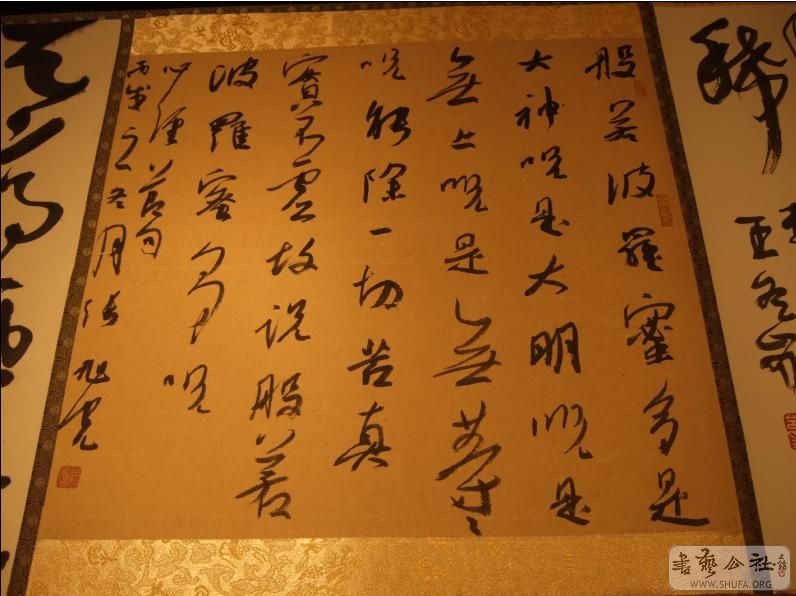 般若波羅蜜多是
大神呪是大明呪是
無上呪是無等等
呪能除一切苦真
實不虛故說般若
波羅蜜多呪
心經節句
丙戌之冬月張旭光
王冬齡
書藝公社
WWW.SHUFA.ORG